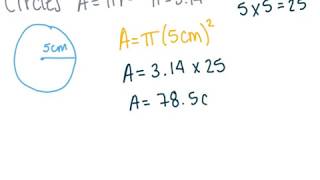 Circles A=π
5×5=25
5cm
A=π(5cm)²
A=3.14×25
A=78.5c